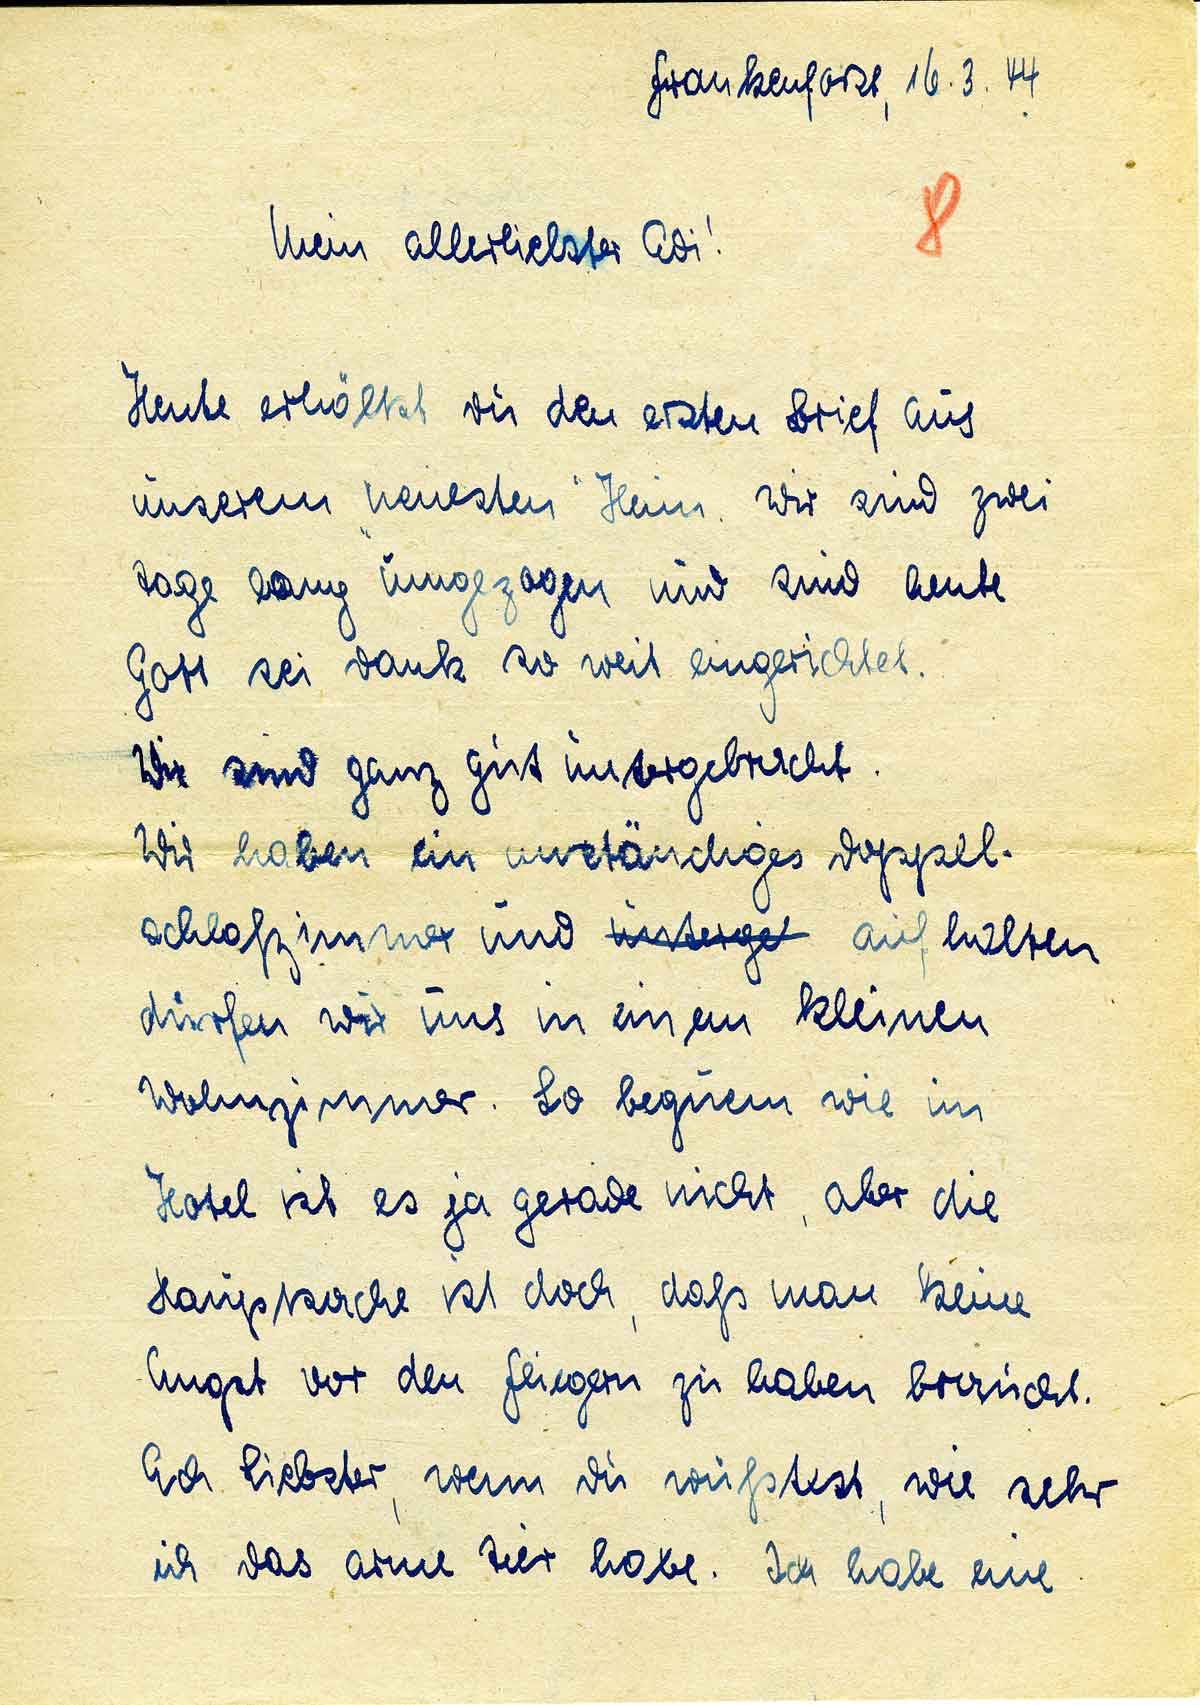 Frankenforst, 16.3.44
8
Mein allerliebster Adi!
Heute erhältst du den ersten Brief aus
unserem „neuesten“ Heim. Wir sind zwei
Tage lang umgezogen und sind heute
Gott sei dank so weit eingerichtet.
Wir sind ganz gut untergebracht.
Wir haben ein anständiges Doppel-
schlafzimmer und unterge aufhalten
dürfen wir uns in einem kleinen
Wohnzimmer. So bequem wie im
Hotel ist es ja gerade nicht, aber die
Hauptsache ist doch, daß man keine
Angst vor den Fliegern zu haben braucht.
Ach Liebster, wenn du wüßtest, wie sehr
ich das arme Tier habe. Ich habe eine